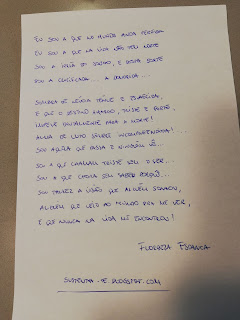 EU SOU A QUE NO MUNDO ANDA PERDIDA
EU SOU A QUE NA VIDA NÃO TEM NORTE
SOU A IRMÃ DO SONHO, E DESTA SORTE
SOU A CRUCIFICADA... A DOLORIDA...
SOMBRA DE NÉVOA TÉNUE E ESVAECIDA,
E QUE O DESTINO AMARGO, TRISTE E FORTE,
IMPELE BRUTALMENTE PARA A MORTE!
ALMA DE LUTO SEMPRE INCOMPREENDIDA!...
SOU AQUELA QUE PASSA E NINGUÉM VÊ...
SOU A QUE CHAMAM TRISTE SEM O SER...
SOU A QUE CHORA SEM SABER PORQUÊ...
SOU TALVEZ A VISÃO QUE ALGUÉM SONHOU,
ALGUÉM QUE VEIO AO MUNDO PRA ME VER,
E QUE NUNCA NA VIDA ME ENCONTROU!
FLORBELA ESPANCA
SUSTENTA-TE.BLOGSPOT.COM